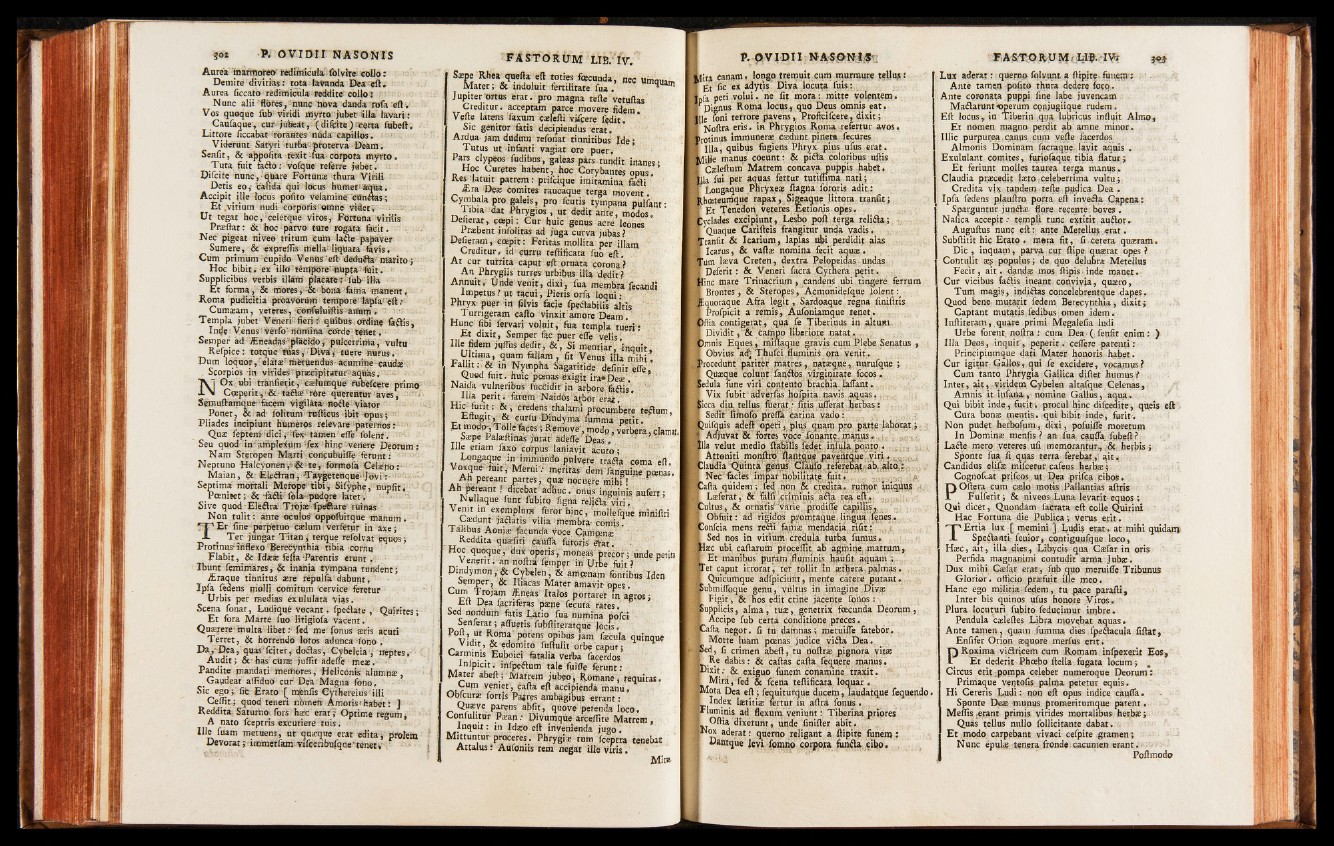 302 P. OVIDII NASONIS
Aurea marmoreo redimicula solvite collo:
Demite divitias: tota lavanda Dea est.
Aurea siccato redimicula reddite collo:
Nunc alii flores, nunc nova danda rosa est.
Vos quoque sub viridi myrto jubet illa lavari:
Causaque, cur jubeat, (discite) certa subest.
Littore siccabat rorantes nuda capillos.
Viderunt Satyri turba proterva Deam.
Sensit, & apposita texit sua corpora myrto.
Tuta fuit facto: vosque referre jubet.
Discite nunc, quare Fortunæ thura Virili
Detis eo, calida qui locus humet aqua.
Accipit ille locus posito velamine cunctas;
Et vitium nudi corporis omne videt.
Ut tegat hoc, celetque viros, Fortuna virilis
Præstat: & hoc parvo ture rogata facit.
Nec pigeat niveo tritum cum lacte papaver
Sumere, & expressis mella liquata favis.
Cum primum cupido Venus est deducta marito;
Hoc bibit. ex illo tempore nupta fuit.
Supplicibus verbis illam placate: sub illa
Et forma, & mores, & bona fama manent.
Roma pudicitia proavorum tempore lapsa est:
Cumæam, veteres, consuluistis anum.
Templa jubet Veneri fieri: quibus ordine factis,
Inde Venus verso nomina corde tenet.
Semper ad Æneadas placido, pulcerrima, vultu
Respice: totque tuas, Diva, tuere nurus.
Dum loquor, elatæ metuendus acumine caudæ
Scorpios in virides præcipitatur aquas.
NOx ubi transierit, cælumque rubescere primo
Cœperit, & tactæ rore querentur aves,
Semustamque facem vigilata nocte viator
Ponet, & ad solitum rusticus ibit opus;
Pliades incipiunt humeros relevare paternos:
Quæ septem dici, sex tamen esse solent.
Seu quod in amplexum sex hinc venere Deorum:
Nam Steropen Marti concubuisse ferunt:
Neptuno Halcyonen, & te, formosa Celæno:
Maian, & Electran, Taygetenque Jovi:
Septima mortali Merope tibi, Sisyphe, nupsit.
Pœnitet; & facti sola pudore latet.
Sive quod Electra Trojæ spectare ruinas
Non tulit: ante oculos opposuitque manum.
TEr sine perpetuo cælum versetur in axe;
Ter jungat Titan, terque resolvat equos;
Protinus inflexo Berecynthia tibia cornu
Flabit, & Idææ festa Parentis erunt.
Ibunt semimares, & inania tympana tundent;
Æraque tinnitus ære repulsa dabunt.
Ipsa sedens molli comitum cervice feretur
Urbis per medias exululata vias.
Scena sonat, Ludique vocant. spectate, Quirites;
Et fora Marte suo litigiosa vacent.
Quærere multa libet: sed me sonus æris acuti
Terret, & horrendo lotos adunca sono.
Da, Dea, quas sciter, doctas, Cybeleia, neptes.
Audit; & has curæ jussit adesse meæ.
Pandite mandati memores, Heliconis alumnæ,
Gaudeat assiduo cur Dea Magna sono.
Sic ego; sic Erato [ mensis Cythereius illi
Cessit; quod teneri nomen Amoris habet: ]
Reddita Saturno sors hæc erat; Optime regum,
A nato sceptris excutiere tuis.
Ille suam metuens, ut quæque erat edita, prolem
Devorat; immersam visceribusque tenet.
FASTORUM LIB. IV.
Sæpe Rhea questa est toties fœcunda, nec umquam
Mater; & indoluit fertilitate sua.
Jupiter ortus erat. pro magna teste vetustas
Creditur. acceptam parce movere fidem.
Veste latens saxum cælesti viscere sedit.
Sic genitor fatis decipiendus erat.
Ardua jam dudum resonat tinnitibus Ide;
Tutus ut infanti vagiat ore puer.
Pars clypeos sudibus, galeas pars tundit inanes;
Hoc Curetes habent, hoc Corybantes opus.
Res latuit patrem: priscique imitamina facti
Æra Deæ comites raucaque terga movent.
Cymbala pro galeis, pro scutis tympana pulsant:
Tibia dat Phrygios, ut dedit ante, modos.
Desierat, cœpi: Cur huic genus acre leones
Præbent insolitas ad juga curva jubas?
Desieram, cœpit: Feritas mollita per illam
Creditur. id curru testificata suo est.
At cur turrita caput est ornata corona?
An Phrygiis turres urbibus illa dedit?
Annuit. Unde venit, dixi, sua membra secandi
Impetus? ut tacui, Pieris orsa loqui:
Phryx puer in silvis facie spectabilis altis
Turrigeram casto vinxit amore Deam.
Hunc sibi servari voluit, sua templa tueri:
Et dixit, Semper fac puer esse velis.
Ille fidem jussus dedit, &, Si mentiar, inquit,
Ultima, quam fallam, sit Venus illa mihi.
Fallit: & in Nympha Sagaritide desinit esse,
Quod fuit. huic pœnas exigit ira Deæ.
Naida vulneribus succidit in arbore factis.
Illa perit. fatum Naidos arbor erat.
Hic furit: &, credens thalami procumbere tectum,
Effugit, & cursu Dindyma summa petit.
Et modo, Tolle faces; Remove, modo, verbera, clamat.
Sæpe Palæstinas jurat adesse Deas.
Ille etiam saxo corpus laniavit acuto;
Longaque in immundo pulvere tracta coma est.
Voxque fuit, Merui: meritas dem sanguine pœnas.
Ah pereant partes, quæ nocuere mihi!
Ah pereant! dicebat adhuc. onus inguinis aufert;
Nullaque sunt subito signa relicta viri.
Venit in exemplum furor hinc, mollesque ministri
Cædunt jactatis vilia membra comis.
Talibus Aoniæ facunda voce Camœnæ
Reddita quæsiti caussa furoris erat.
Hoc quoque, dux operis, moneas precor; unde petita
Venerit. an nostra semper in Urbe fuit?
Dindymon, & Cybelen, & amœnam fontibus Iden
Semper, & Iliacas Mater amavit opes.
Cum Trojam Æneas Italos portaret in agros;
Est Dea sacriferas pæne secuta rates.
Sed nondum fatis Latio sua numina posci
Senserat; assuetis substiteratque locis.
Post, ut Roma potens opibus jam sæcula quinque
Vidit, & edomito sustulit orbe caput;
Carminis Euboici fatalia verba sacerdos
Inspicit. inspectum tale fuisse ferunt:
Mater abest; Matrem jubeo, Romane, requiras.
Cum veniet, casta est accipienda manu.
Obscuræ sortis Patres ambagibus errant:
Quæve parens absit, quove petenda loco.
Consulitur Pæan: Divumque arcessite Matrem,
Inquit: in Idæo est invenienda jugo.
Mittuntur proceres. Phrygiæ tum sceptra tenebat
Attalus: Ausoniis rem negat ille viris.
Mira
P. OVIDII NASONIS
Mira canam. longo tremuit cum murmure tellus:
Et sic ex adytis Diva locuta suis:
Ipsa peti volui. ne sit mora: mitte volentem.
Dignus Roma locus, quo Deus omnis eat.
Ille soni terrore pavens, Proficiscere, dixit;
Nostra eris. in Phrygios Roma refertur avos.
Protinus immuneræ cædunt pineta secures
Illa, quibus fugiens Phryx pius usus erat.
Mille manus coeunt: & picta coloribus ustis
Cælestum Matrem concava puppis habet.
Illa sui per aquas fertur tutissima nati;
Longaque Phryxeæ stagna sororis adit:
Rhœteumque rapax, Sigeaque littora transit;
Et Tenedon veteres Eetionis opes.
Cyclades excipiunt, Lesbo post terga relicta;
Quaque Caristeis frangitur unda vadis.
Transit & Icarium, lapsas ubi perdidit alas
Icarus, & vastæ nomina fecit aquæ.
Tum læva Creten, dextra Pelopeidas undas
Deserit: & Veneri sacra Cythera petit.
Hinc mare Trinacrium, candens ubi tingere ferrum
Brontes, & Steropes, Acmonidesque solent:
Æquoraque Afra legit, Sardoaque regna sinistris
Prospicit a remis, Ausoniamque tenet.
Ostia contigerat, qua se Tiberinus in altum
Dividit, & campo liberiore natat.
Omnis Eques, mistaque gravis cum Plebe Senatus,
Obvius ad Thusci fluminis ora venit.
Procedunt pariter matres, natæque, nurusque;
Quæque colunt sanctos virginitate focos.
Sedula fune viri contento brachia lassant.
Vix subit adversas hospita navis aquas.
Sicca diu tellus fuerat: sitis usserat herbas:
Sedit limoso pressa carina vado:
Quisquis adest operi, plus quam pro parte laborat;
Adjuvat & fortes voce sonante manus.
Illa velut medio stabilis sedet insula ponto.
Attoniti monstro stantque paventque viri.
Claudia Quinta genus Clauso referebat ab alto:
Nec facies impar nobilitate fuit.
Casta quidem: sed non & credita. rumor iniquus
Læserat, & falsi criminis acta rea est.
Cultus, & ornatis varie prodisse capillis,
Obfuit: ad rigidos promtaque lingua senes.
Conscia mens recti famæ mendacia risit:
Sed nos in vitium credula turba sumus.
Hæc ubi castarum processit ab agmine matrum,
Et manibus puram fluminis hausit aquam;
Ter caput irrorat, ter tollit in æthera palmas.
Quicumque adspiciunt, mente carere putant.
Submissoque genu, vultus in imagine Divæ
Figit, & hos edit crine jacente sonos:
Supplicis, alma, tuæ, genetrix fœcunda Deorum,
Accipe sub certa conditione preces.
Casta negor. si tu damnas; meruisse fatebor.
Morte luam pœnas judice victa Dea.
Sed, si crimen abest, tu nostræ pignora vitæ
Re dabis: & castas casta sequere manus.
Dixit: & exiguo funem conamine traxit.
Mira, sed & scena testificata loquar.
Mota Dea est; sequiturque ducem, laudatque sequendo.
Index lætitiæ fertur in astra sonus.
Fluminis ad flexum veniunt: Tiberina priores
Ostia dixerunt, unde sinister abit.
Nox aderat: querno religant a stipite funem:
Dantque levi somno corpora functa cibo.
FASTORUM LIB. IV. 303
Lux aderat: querno solvunt a stipite funem:
Ante tamen posito thura dedere foco.
Ante coronata puppi sine labe juvencam
Mactarunt operum conjugiique rudem.
Est locus, in Tiberin qua lubricus influit Almo,
Et nomen magno perdit ab amne minor.
Illic purpurea canus cum veste sacerdos
Almonis Dominam sacraque lavit aquis.
Exululant comites, furiosaque tibia flatur;
Et feriunt molles taurea terga manus.
Claudia præcedit læto celeberrima vultu;
Credita vix tandem teste pudica Dea.
Ipsa sedens plaustro porta est invecta Capena:
Sparguntur junctæ flore recente boves.
Nasica accepit: templi tunc extitit auctor.
Augustus nunc est: ante Metellus erat.
Substitit hic Erato. mora fit, si cetera quæram.
Dic, inquam, parva cur stipe quærat opes?
Contulit æs populus; de quo delubra Metellus
Fecit, ait. dandæ mos stipis inde manet.
Cur vicibus factis ineant convivia, quæro,
Tum magis, indictas concelebrentque dapes.
Quod bene mutarit sedem Berecynthia, dixit;
Captant mutatis sedibus omen idem.
Institeram, quare primi Megalesia ludi
Urbe forent nostra: cum Dea ( sensit enim: )
Illa Deos, inquit, peperit. cessere parenti:
Principiumque dati Mater honoris habet.
Cur igitur Gallos, qui se excidere, vocamus?
Cum tanto Phrygia Gallica distet humus?
Inter, ait, viridem Cybelen altasque Celenas,
Amnis it insana, nomine Gallus, aqua.
Qui bibit inde, furit. procul hinc discedite, queis est
Cura bonæ mentis. qui bibit inde, furit.
Non pudet herbosum, dixi, posuisse moretum
In Dominæ mensis? an sua caussa subest?
Lacte mero veteres usi memorantur, & herbis;
Sponte sua si quas terra ferebat, ait.
Candidus elisæ miscetur caseus herbæ;
Cognoscat priscos ut Dea prisca cibos.
POstera cum cælo motis Pallantias astris
Fulserit; & niveos Luna levarit equos;
Qui dicet, Quondam sacrata est colle Quirini
Hac Fortuna die Publica; verus erit.
TErtia lux [ memini ] Ludis erat. at mihi quidam
Spectanti senior, contiguusque loco,
Hæc, ait, illa dies, Libycis qua Cæsar in oris
Perfida magnanimi contudit arma Jubæ.
Dux mihi Cæsar erat, sub quo meruisse Tribunus
Glorior. officio præfuit ille meo.
Hanc ego militia sedem, tu pace parasti,
Inter bis quinos usus honore Viros.
Plura locuturi subito seducimur imbre.
Pendula cælestes Libra movebat aquas.
Ante tamen, quam summa dies spectacula sistat,
Ensifer Orion æquore mersus erit.
PRoxima victricem cum Romam inspexerit Eos,
Et dederit Phœbo stella fugata locum;
Circus erit pompa celeber numeroque Deorum:
Primaque ventosis palma petetur equis.
Hi Cereris Ludi: non est opus indice caussa.
Sponte Deæ munus promeritumque patent.
Messis erant primis virides mortalibus herbæ;
Quas tellus nullo sollicitante dabat.
Et modo carpebant vivaci cespite gramen;
Nunc epulæ tenera fronde cacumen erant.
Postmodo